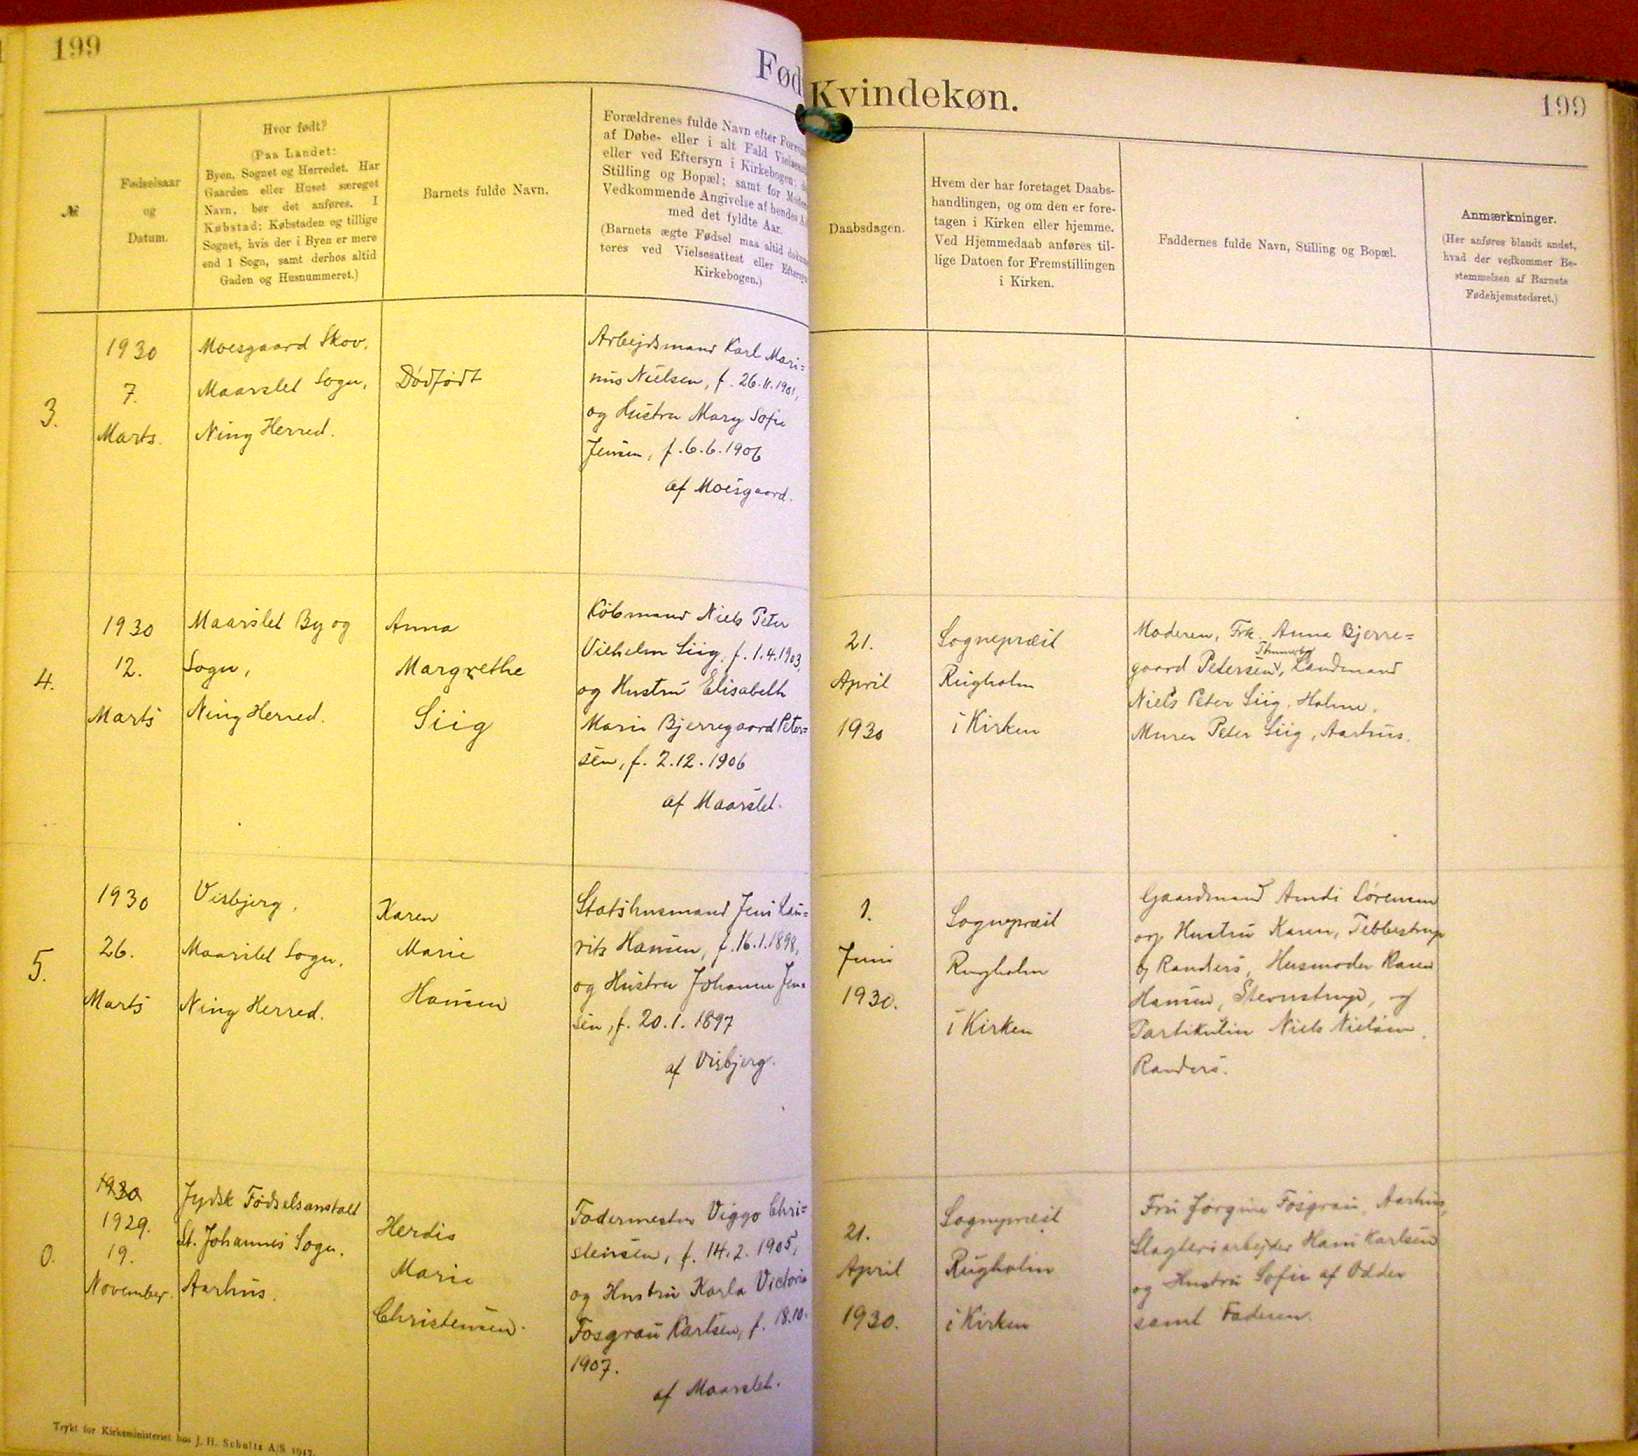 199
Fød
Kvindekøn.
199
№
Fødselsaar
og
Datum.
Hvor født?
(Paa Landet:
Byen, Sognet og Herredet. Har
Gaarden eller Huset særeget
Navn, bør det anføres. I
Købstad: Købstaden og tillige
Sognet, hvis der i Byen er mere
end 1 Sogn, samt derhos altid
Gaden og Husnummeret.)
Barnets fulde Navn.
Forældrenes fulde Navn efter
af Døbe- eller i alt Fald
eller ved Eftersyn i Kirkebogen;
Stilling og Bopæl; samt for
Vedkommende Angivelse af hendes
med det fyldte Aar.
(Barnets ægte Fødsel maa altid
teres ved Vielsesattest eller
Kirkebogen.)
Daabsdagen.
Hvem der har foretaget Daabs-
handlingen, og om den er fore-
tagen i Kirken eller hjemme.
Ved Hjemmedaab anføres til-
lige Datoen for Fremstillingen
i Kirken.
Faddernes fulde Navn, Stilling og Bopæl.
Anmærkninger.
(Her anføres blandt andet,
hvad der vedkommer Be-
stemmelsen af Barnets
Fødehjemstedsret.)
3.
1930
7.
Marts.
Moesgaard Skov.
Maarslet Sogn,
Ning Herred.
Dødfødt
Arbejdsmand Karl Mari=
nus Nielsen, f. 26.11.1901,
og Hustru Mary Sofie
Jensen, f. 6.6.1906
af Moesgaard.
4.
1930
12.
Marts
Maarslet By og
Sogn,
Ning Herred.
Anna
Margrethe
Siig
Købmand Niels Peter
Vilhelm Siig, f. 1.4.1903,
og Hustru Elisabeth
Marie Bjerregaard Peter=
sen, f. 2.12.1906
af Maarslet.
21.
April
1930
Sognepræst
Rugholm
i Kirken
Moderen, Frk. Anna Bjerre=
gaard Petersen, Landmand
Niels Peter Siig, Holme.
Murer Peter Siig, Aarhus.
5.
1930
26.
Marts
Visbjerg.
Maarslet Sogn,
Ning Herred.
Karen
Marie
Hansen
Statshusmand Jens Lau=
rits Hansen, f. 16.1.1898,
og Hustru Johanne Jen=
sen, f. 20.1.1897
af Visbjerg.
1.
Juni
1930.
Sognepræst
Rugholm
i Kirken
Gaardmand Sørensen
og Hustru Karen, Tebbestrup
Randers, Husmoder Karen
Hansen, Stevnstrup, og
Partikulier Niels Nielsen
Randers.
0.
1930
1929.
19.
November.
Jydsk Fødselsanstalt
St. Johannes Sogn.
Aarhus.
Herdis
Marie
Christensen.
Fodermester Viggo Chri=
stensen, f. 14.2.1905,
og Hustru Karla Victoria
Fosgrau Karlsen, f. 18.10.
1907.
af Maarslet.
21.
April
1930.
Sognepræst
Rugholm
i Kirken
Fru Jørgine Fosgrau, Aarhus,
Slagteriarbejder Hans Karlsen
og Hustru Sofie af Odder
samt Faderen.
Trykt for Kirkeministeriet hos J. H. Schultz A/S 1917.